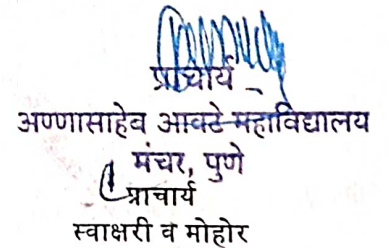 प्राचार्य
अण्णासाहेब आवटे महाविद्यालय
मंचर, पुणे
प्राचार्य
स्वाक्षरी व मोहोर